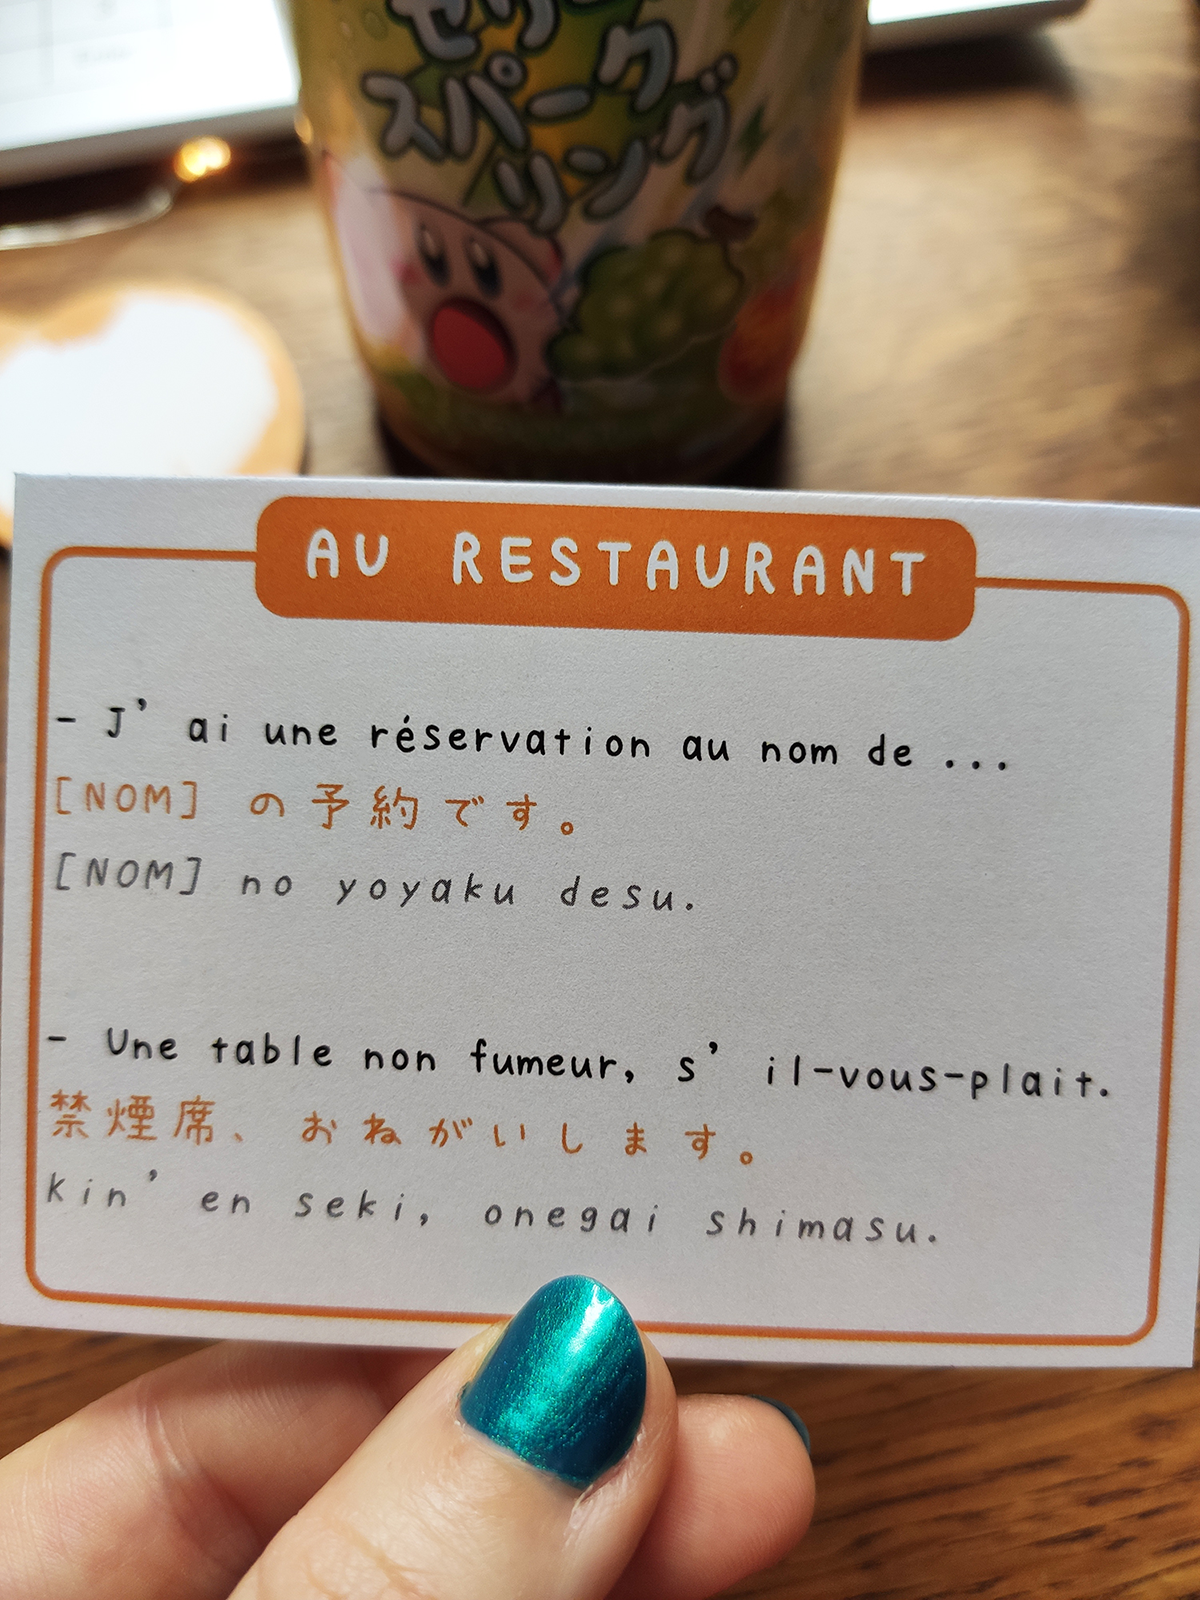 ゼリー
スパーク
リング
AU RESTAURANT
- J' ai une réservation au nom de ...
[NOM] の予約です。
[NOM] no yoyaku desu.
- Une table non fumeur, s' il-vous-plait.
禁煙席、おねがいします。
kin' en seki, onegai shimasu.